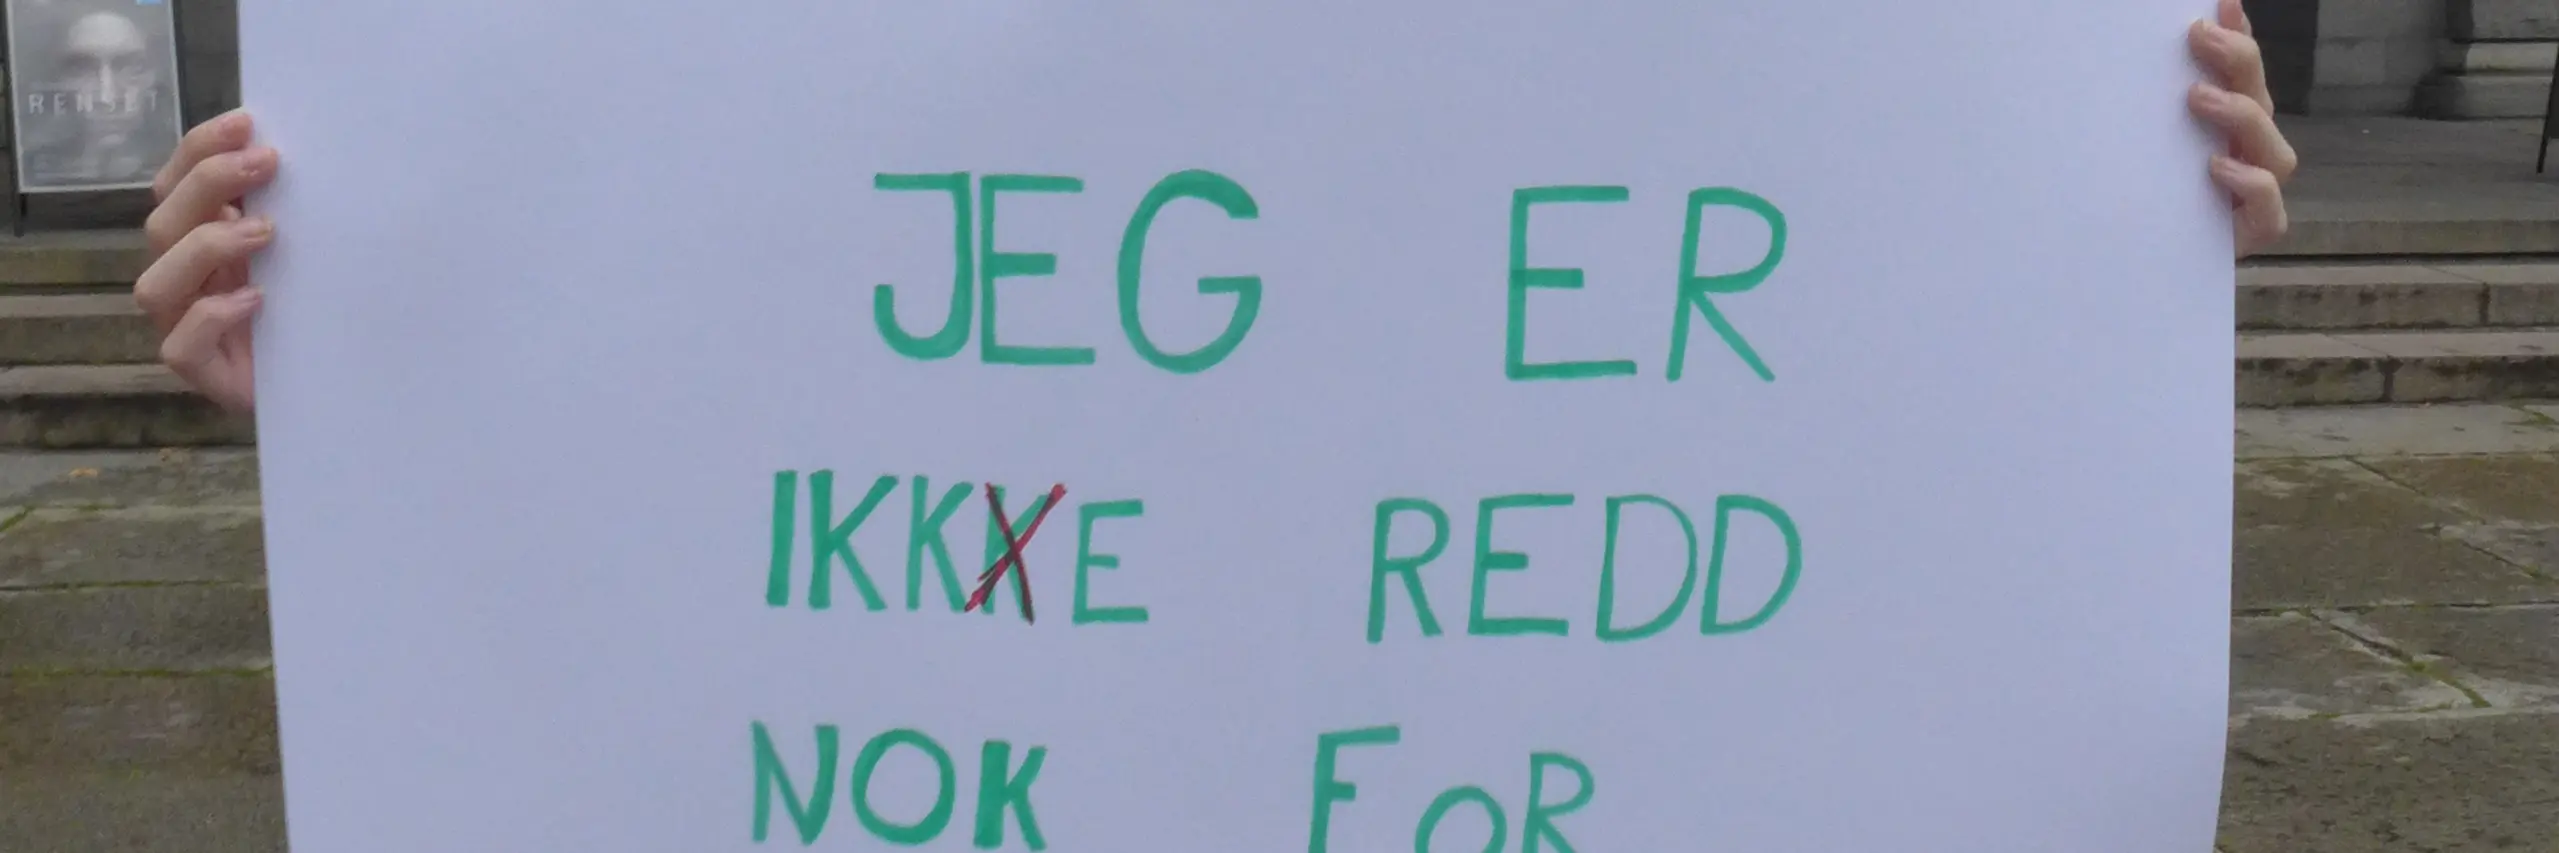 RENSET
JEG ER
IKKKE REDD
NOK FOR